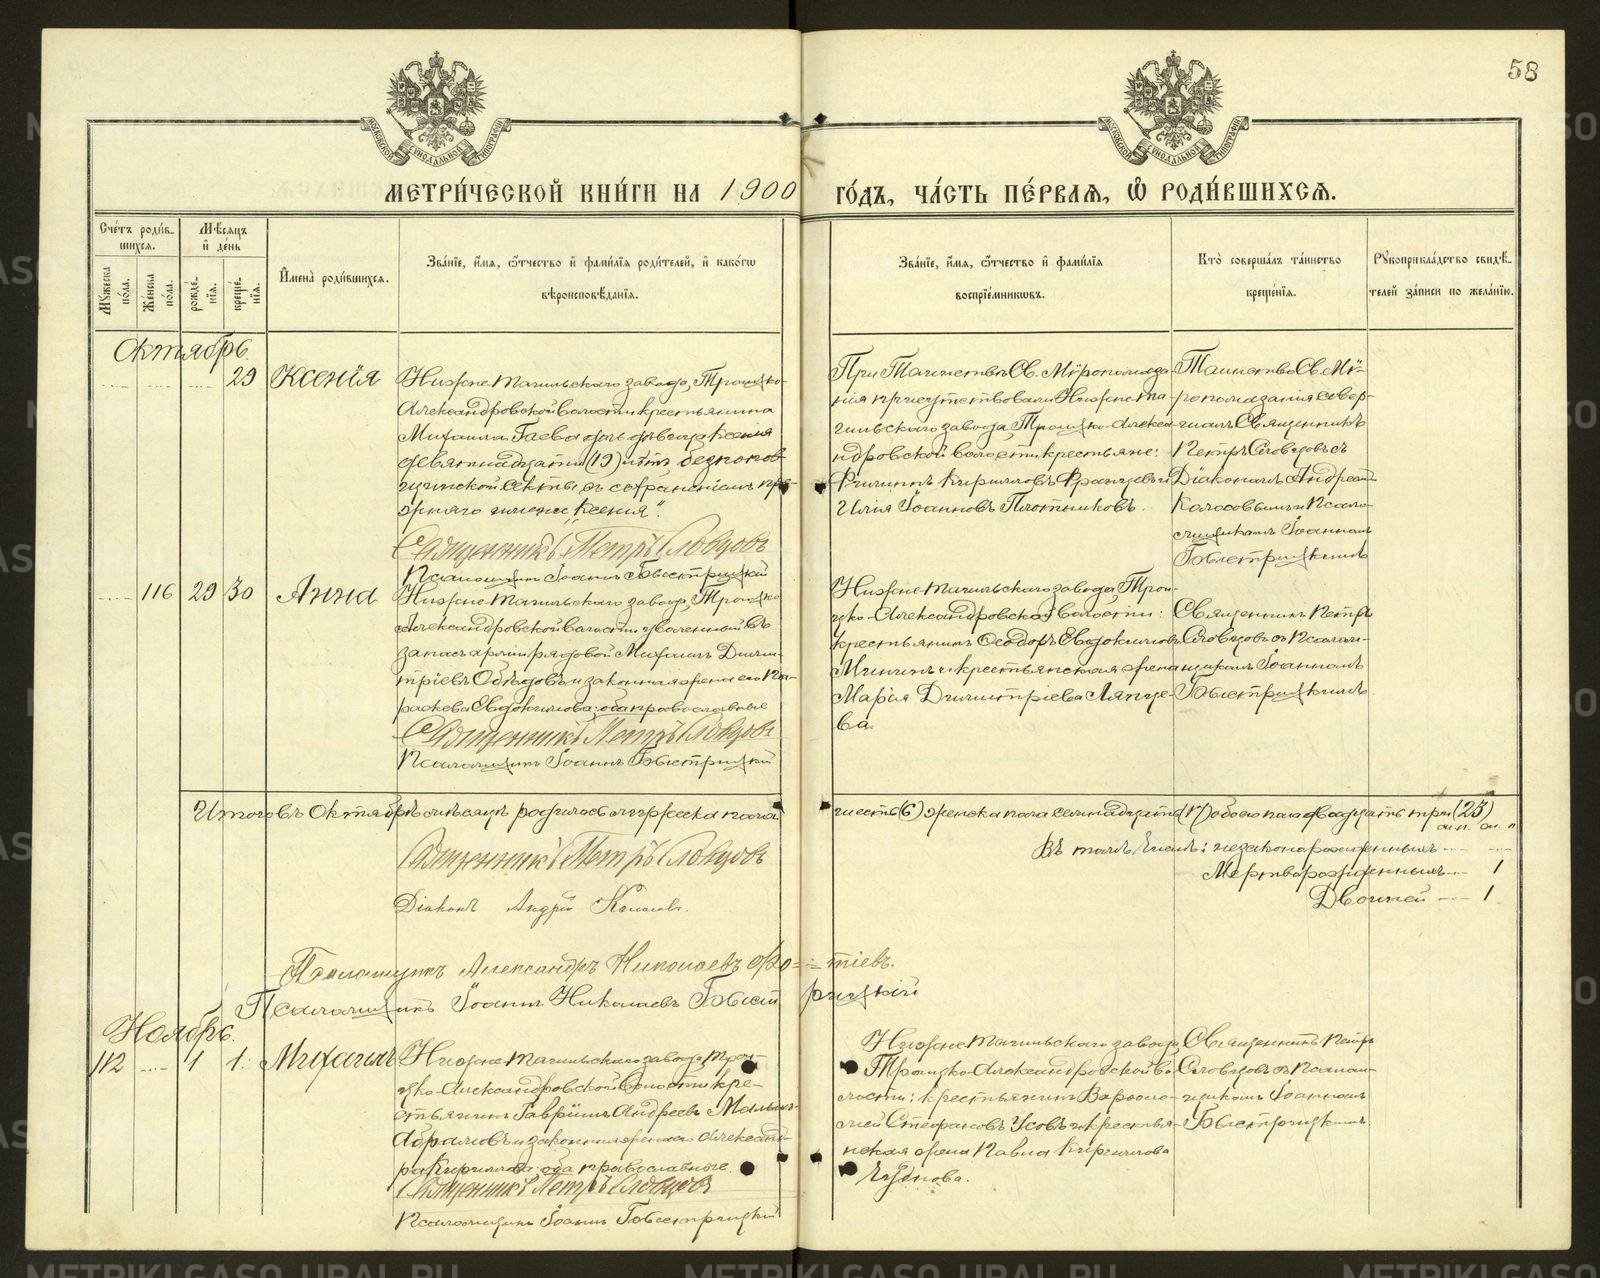 58
МОСКОВСКОЙ СѴНОДАЛЬНОЙ ТИПОГРАФІИ
МОСКОВСКОЙ СѴНОДАЛЬНОЙ ТИПОГРАФІИ
МЕТРИ́ЧЕСКОЙ КНИ́ГИ НА 1900 ГО́ДЪ, ЧА́СТЬ ПЕ́РВАЯ, Ѡ҆ РОДИ́ВШИХСЯ.
Сче́тъ роди́в-
шихся.
Мѣ́сяцъ
и҆ де́нь
Мꙋ́жеска
по́ла.
Же́нска
по́ла.
рожде́-
нїя.
креще́-
нїя.
И҆мена̀ роди́вшихся.
Зва́нїе, и҆́мя, ѻ҆́тчество и҆ фами́лїя роди́телей, и҆ како́гѡ
вѣроисповѣ́данїя.
Зва́нїе, и҆́мя, ѻ҆́тчество и҆ фами́лїя
воспрїе́мникѡвъ.
Кто̀ соверша́лъ та́инство
креще́нїя.
Рꙋкоприкла́дство свидѣ́-
телей за́писи по жела́нїю.
Октябрь.
29 Ксенія
Нижне-Тагильскаго завода, Троицко-
Александровской волости крестьянина
Михаила Гаева дочь девица Ксенія
девятнадцати (19) лѣтъ безпопов-
щинской секты, съ сохраненіемъ пре-
жняго имени „Ксенія“.
Священникъ Петръ Словцовъ
Псаломщикъ Іоаннъ Быстрицкій
При Таинствѣ Св. Мѵропомаза-
нія присутствовали Нижне-Та-
гильскаго завода Троицко-Алекса-
ндровской волости крестьяне:
Филиппъ Кирилловъ и
Илія Іоанновъ Плотниковъ.
Таинство Св. Мѵ-
ропомазанія совер-
шилъ Священникъ
Петръ Словцовъ съ
Діакономъ Андреемъ
Колосовымъ и Псало-
мщикомъ Іоанномъ
Быстрицкимъ
116 29 30 Анна
Нижне-Тагильскаго завода, Троицко-
Александровской волости уволенный въ
запасъ арміи рядовой Михаилъ Дими-
тріевъ и законная жена его Па-
раскева Евдокимова; оба православные
Священникъ Петръ Словцовъ
Псаломщикъ Іоаннъ Быстрицкій
Нижне-Тагильскаго завода Трои-
цко-Александровской волости:
крестьянинъ Ѳеодоръ Евдокимовъ
и крестьянская жена
Марія Димитріева Ляпце-
ва.
Священникъ Петръ
Словцовъ съ Псалом-
щикомъ Іоанномъ
Быстрицкимъ.
Итого въ Октябрѣ мѣсяцѣ родилось мужеска пола шесть (6) женска пола семнадцать (17) обоего пола двадцать три (23)
м.п. ж. п
Въ томъ числѣ: незаконорожденныхъ
Мертворожденныхъ 1
Двойней 1
Священникъ Петръ Словцовъ
Діаконъ Андрей
Псаломщикъ Александръ Николаевъ
Псаломщикъ Іоаннъ Николаевъ Быстрицкій
Ноябрь.
112 1 1. Михаилъ
Нижне-Тагильскаго завода Трои-
цко-Александровской волости кре-
стьянинъ Гавріилъ Андреевъ
Абрамовъ и законная жена его Александ-
ра Кириллова; оба православные.
Священникъ Петръ Словцовъ
Псаломщикъ Іоаннъ Быстрицкій
Нижне-Тагильскаго завода,
Троицко-Александровской во-
лости: крестьянинъ Варѳоло-
мей Стефановъ Усовъ и крестья-
нская жена Павла Кириллова
Священникъ Петръ
Словцовъ съ Псалом-
щикомъ Іоанномъ
Быстрицкимъ.
METRIKI.GASO-URAL.RU
METRIKI.GASO-URAL.RU